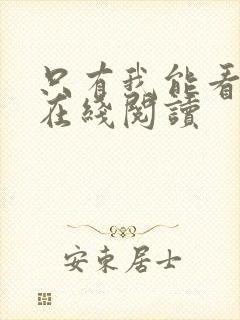 只有我能看
在线閱讀
安東居士